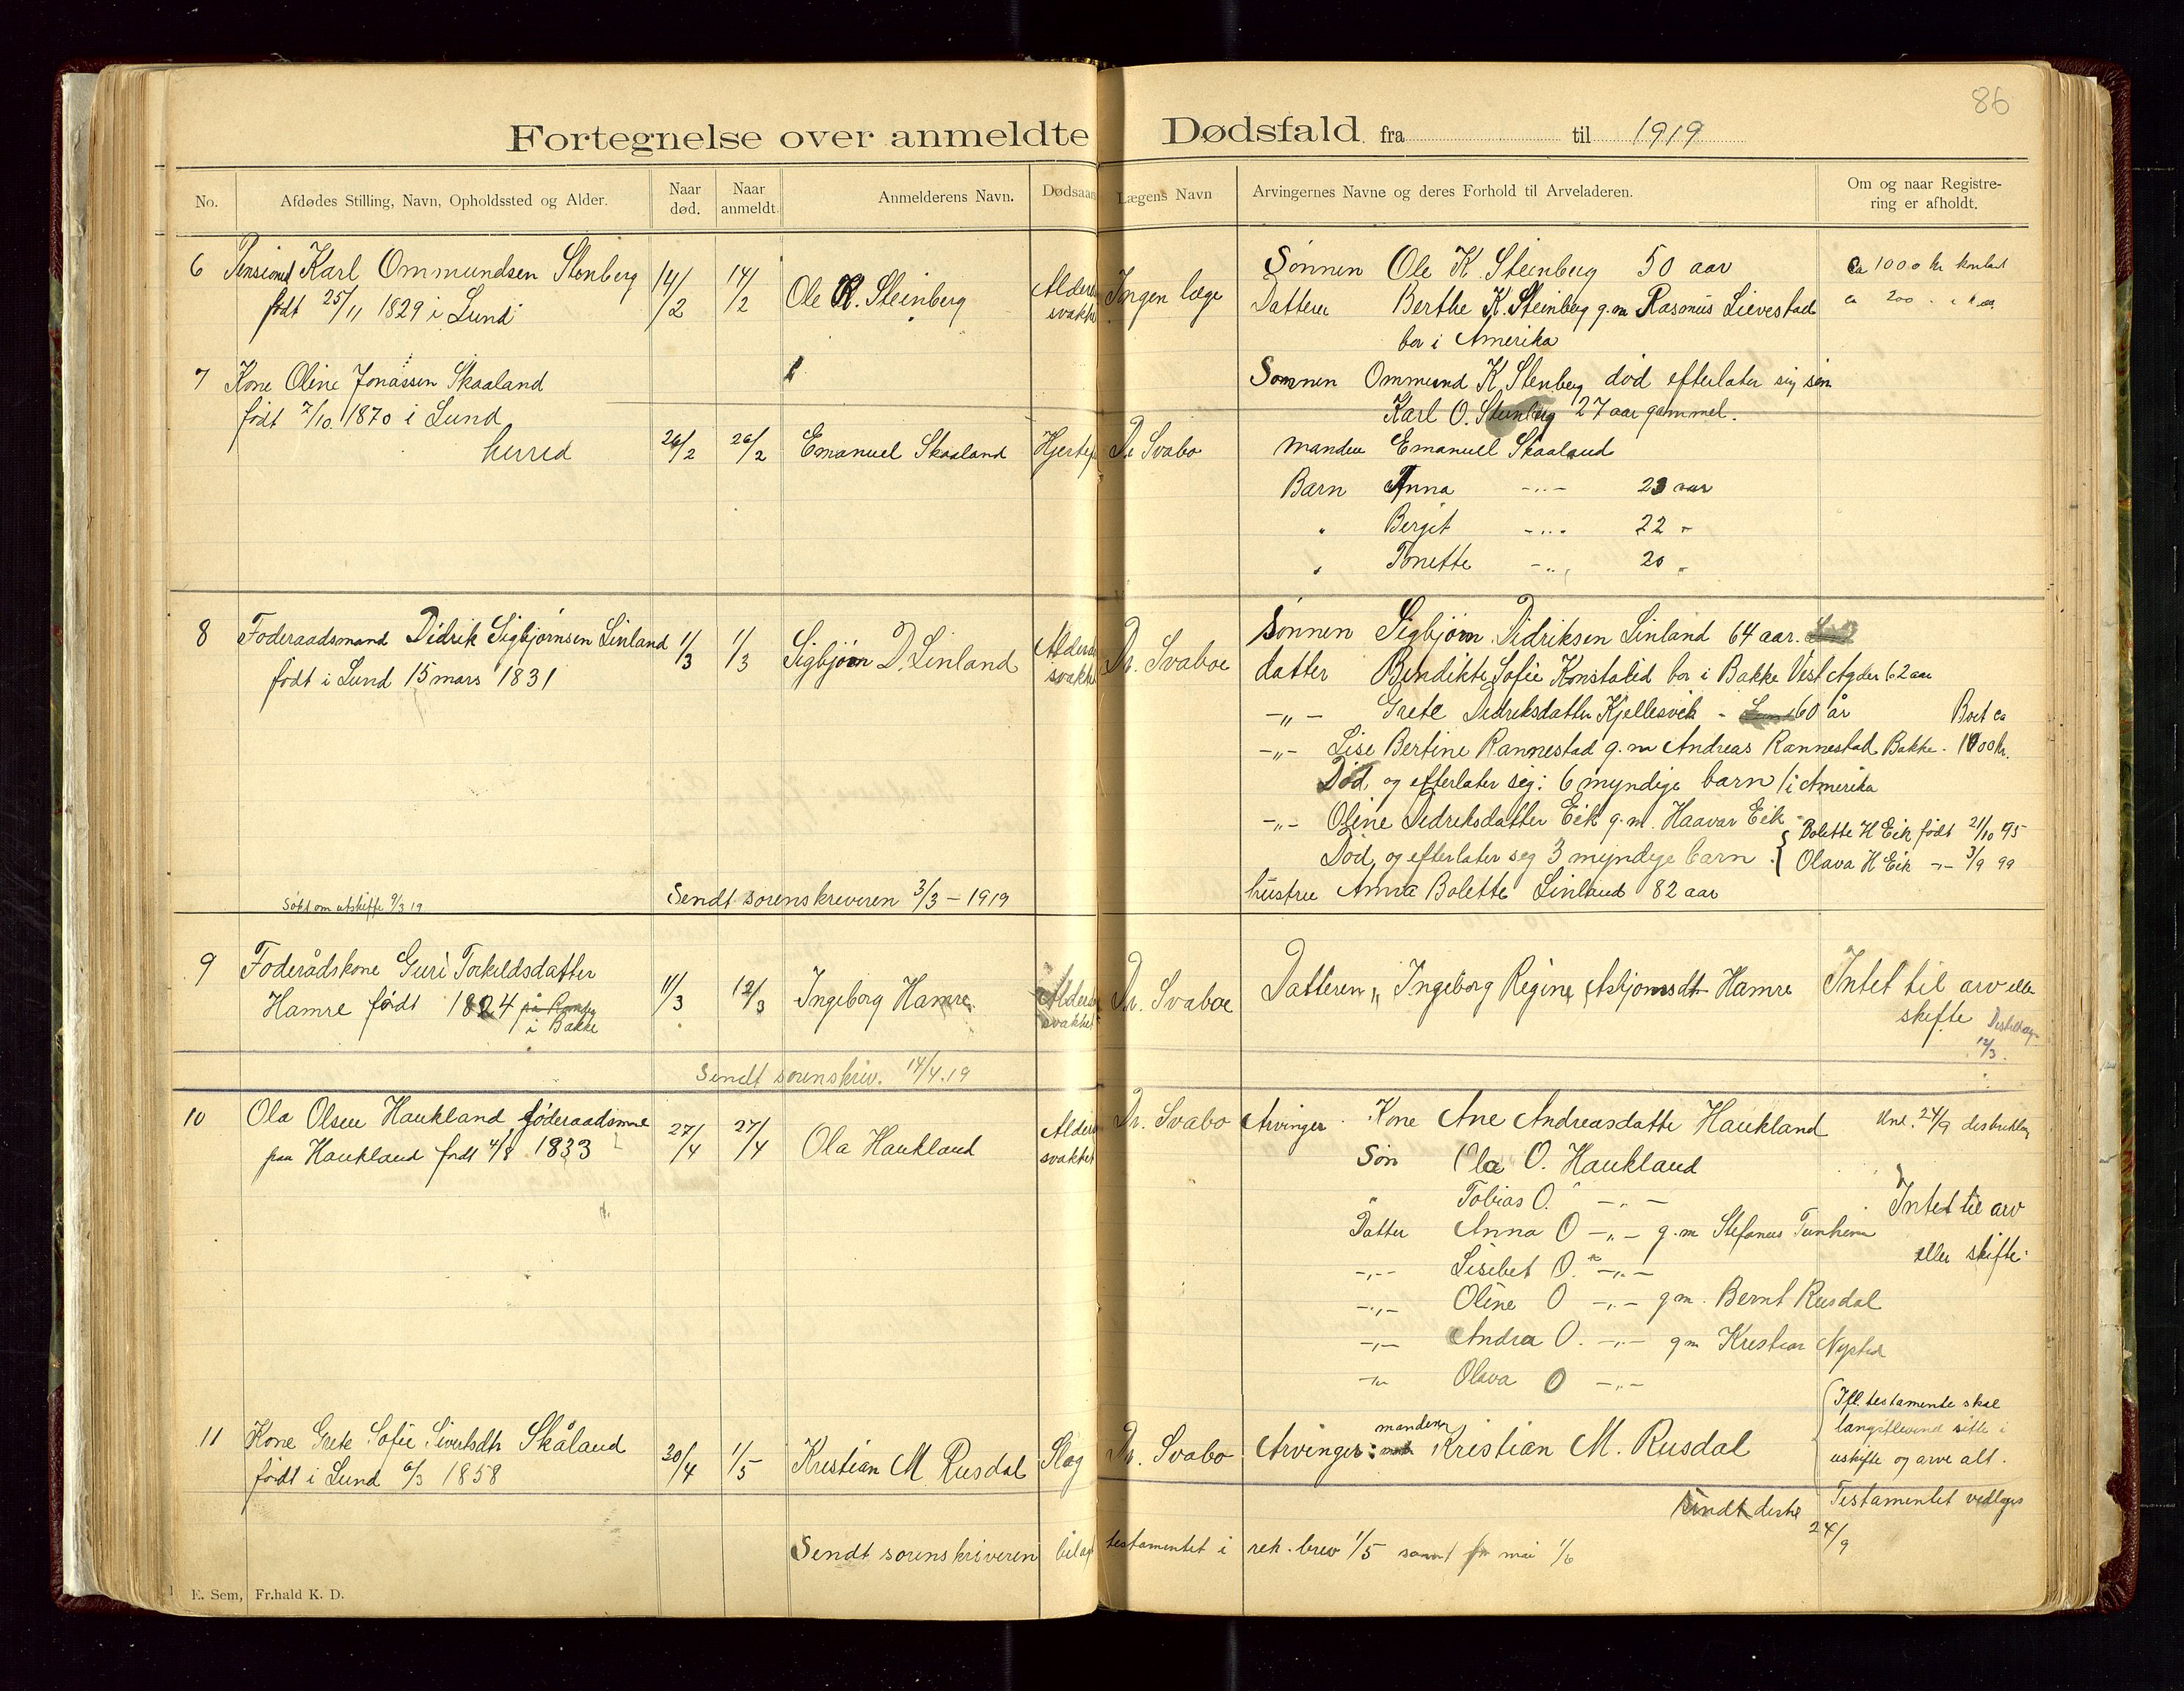 86
Fortegnelse over anmeldte Dødsfald fra til 1919
No. Afdødes Stilling, Navn, Opholdssted og Alder. Naar død. Naar anmeldt. Anmelderens Navn. Dødsaar Lægens Navn Arvingernes Navne og deres Forhold til Arveladeren. Om og naar Registrering er afholdt.
6 Karl Ommundsen Stenberg 14/2 14/2 Ole K. Steinberg Alder Ingen læge Sønnen Ole K. Steinberg 50 aar ca 1000 kr kontant
født 25/11 1829 i Lund svakh Datteren Berthe K. Steinberg g.m Rasmus Lievestad ca 200
bor i Amerika
7 Kone Oline Jonassen Skaaland Sønnen Ommund K. Stenberg død efterlater sig søn
født 7/10 1870 i Lund Karl O. Steinberg 27 aar gammel.
herred 26/2 26/2 Emanuel Skaaland Hjertef Dr Svabo Manden Emanuel Skaaland
Barn Anna -"- 23 aar
" Bergit -"- 22 "
" Tonette -"- 20 "
8 Føderaadsmand Didrik Sigbjørnsen Linland 1/3 1/3 Sigbjørn D. Linland Alderd Dr. Svaboe Sønnen Sigbjørn Didriksen Linland 64 aar.
født i Lund 15 mars 1831 svakh datter Bendikte Sofie Konstalid bor i Bakke Vest Agder 62 aar
-"- Grete Didriksdatter Kjellesvik - 60 år Boet ca
-"- Lise Bertine Rannestad g.m Andreas Rannestad Bakke. 1000 kr.
Død, og efterlater seg: 6 myndige barn / i Amerika
-"- Oline Didriksdatter Eik g.m. Haavar Eik
Død, og efterlater seg 3 myndige barn. { Bolette H Eik født 21/10 95
Olava H Eik -"- 3/9 99
Søkt om utskifte 9/3 19 Sendt sorenskriveren 3/3 - 1919 hustru Anna Bolette Linland 82 aar
9 Foderådskone Guri Torkildsdatter 11/3 12/3 Ingeborg Hamre Alderd Dr. Svaboe Datteren " Ingeborg Regine Asbjørnsdtr Hamre Intet til arv eller
Hamre født 1824 i Bakke svakhet skifte
12/3.
Sendt sorenskriv. 14/4.19
10 Ola Olsen Haukland føderaadsm 27/4 27/4 Ola Haukland Alderd Dr. Svabo Arvinger Kone Ane Andreasdatte Haukland 24/9
paa Haukland født 4/8 1833 svakhet Søn Ola O. Haukland
" Tobias O. -"- Intet til arv
Datter Anna O -"- g.m Stefanus Tunheim
eller skifte.
-"- Lisebet O. -"-
-"- Oline O -"- g.m. Bernt Rusdal
-"- Andrea O. -"- gm Kristian Nystad
-"- Olava O -"-
11 Kone Grete Sofie Sivertsdtr Skåland 30/4 1/5 Kristian M Rusdal Slag Dr. Svabo Arvinger: manden Kristian M. Rusdal Ifl. testamente skal
født i Lund 6/3 1858 længstlevend sitte i
uskifte og arve alt.
Sendt Testamentet vedlages
24/9
Sendt sorenskriveren bilag testamentet i rek. brev 1/5 samt for mai 1/6
E. Sem, Fr.hald K. D.